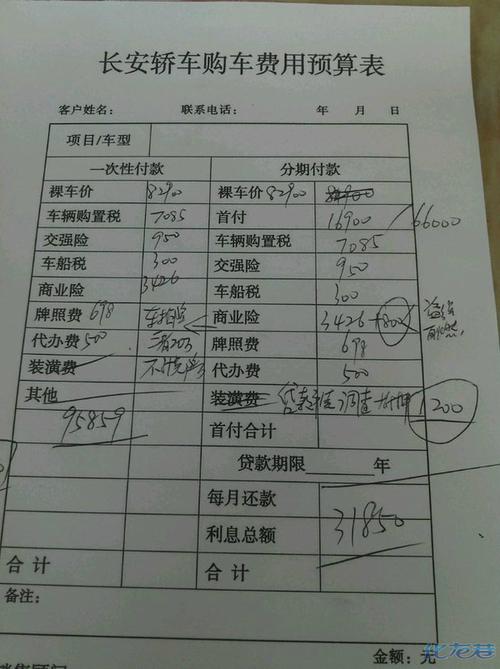 长安轿车购车费用预算表
客户姓名： 联系电话： 年 月 日
项目/车型
一次性付款 分期付款
裸车价 82900 裸车价 82900 81900
车辆购置税 7085 首付 16900 / 66000
交强险 950 车辆购置税 7085
车船税 300 交强险 950
商业险 3426 车船税 300
牌照费 698 商业险 3426 +80
代办费 500 三者20万 牌照费 698
装潢费 代办费 500
其他 装潢费 贷款 调查 1200
95859 首付合计
贷款期限 年
每月还款
利息总额 31850
合计 合计
备注：
金额： 元
化龙巷